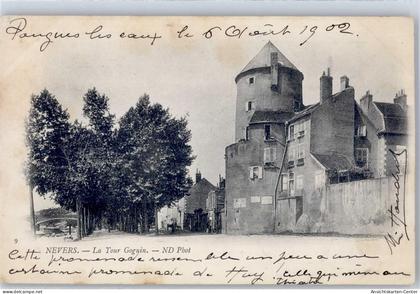 Pougues les eaux le 6 Août 1902
9
NEVERS. — La Tour Goguin. — ND Phot
Cette promenade ressemble un peu à une
certaine promenade de Huy, celle qui mène au
théâtre
Ansichtskarten-Center
www.ansichtskarten-center.de